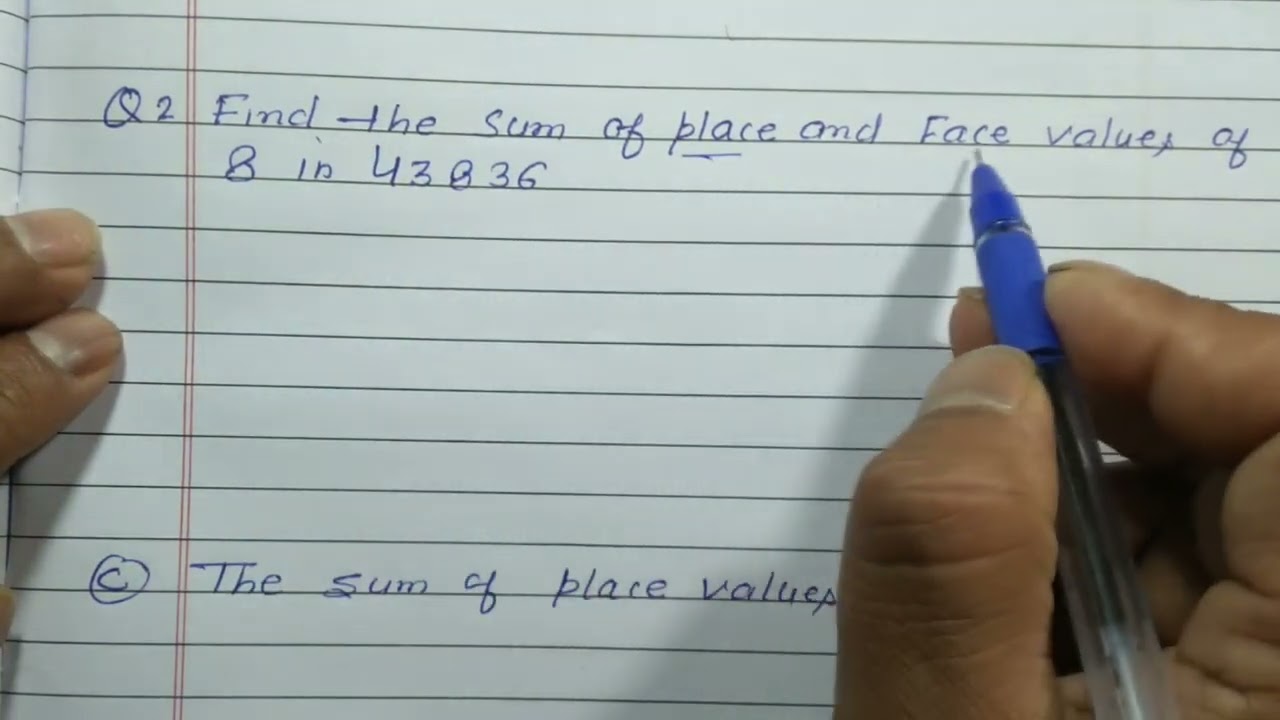 Q2 Find the sum of place and Face values of
8 in 43836
C The sum of place values